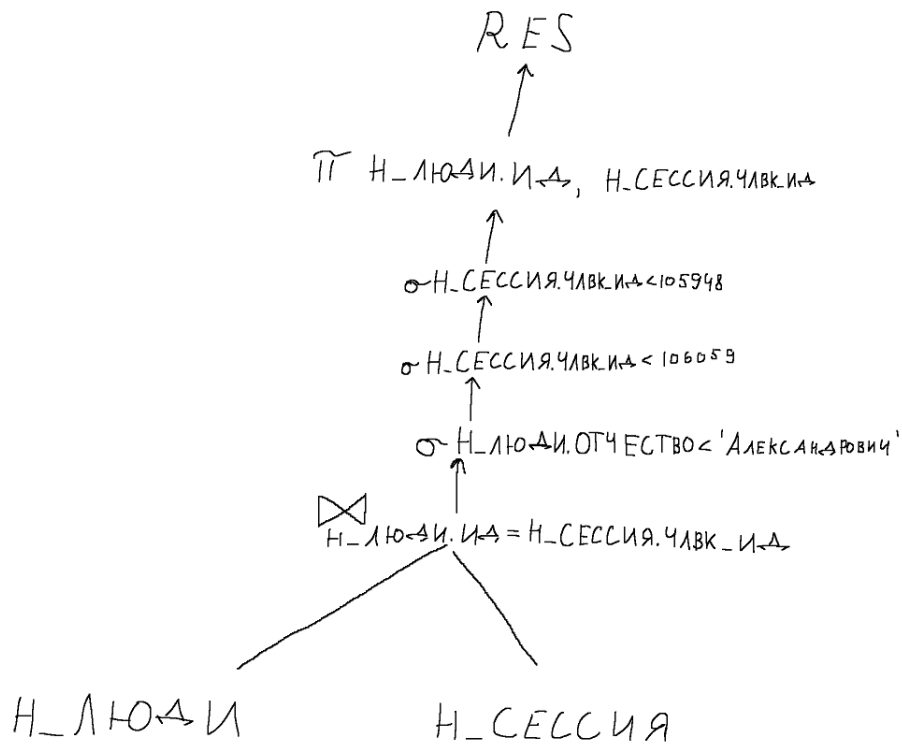 RES
π Н_ЛЮДИ.ИД, Н_СЕССИЯ.ЧЛВК_ИД
σ Н_СЕССИЯ.ЧЛВК_ИД<105948
σ Н_СЕССИЯ.ЧЛВК_ИД<106059
σ Н_ЛЮДИ.ОТЧЕСТВО<'АЛЕКСАНДРОВИЧ'
⋈
Н_ЛЮДИ.ИД=Н_СЕССИЯ.ЧЛВК_ИД
Н_ЛЮДИ Н_СЕССИЯ